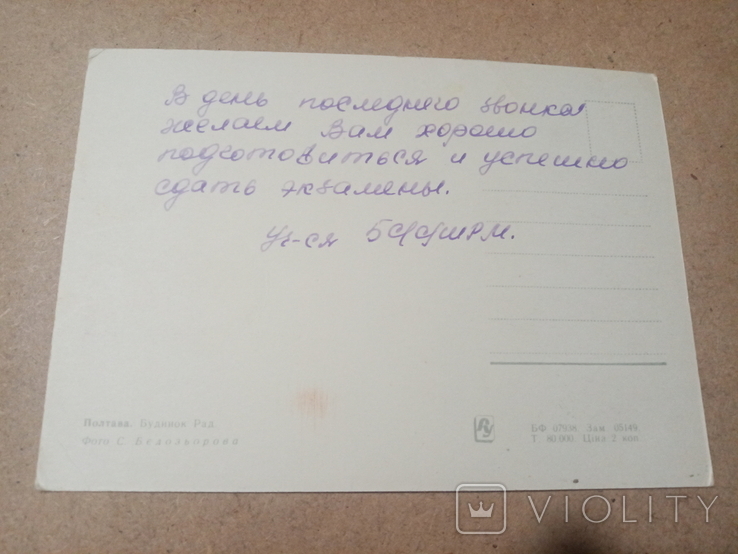 В день последнего звонка
желаем Вам хорошо
подготовиться и успешно
сдать экзамены.
Уч-ся
Полтава. Будинок Рад
Фото С. Белозворова
БФ Зам.
Т. 80.000. Ціна 2 коп.
VIOLITY